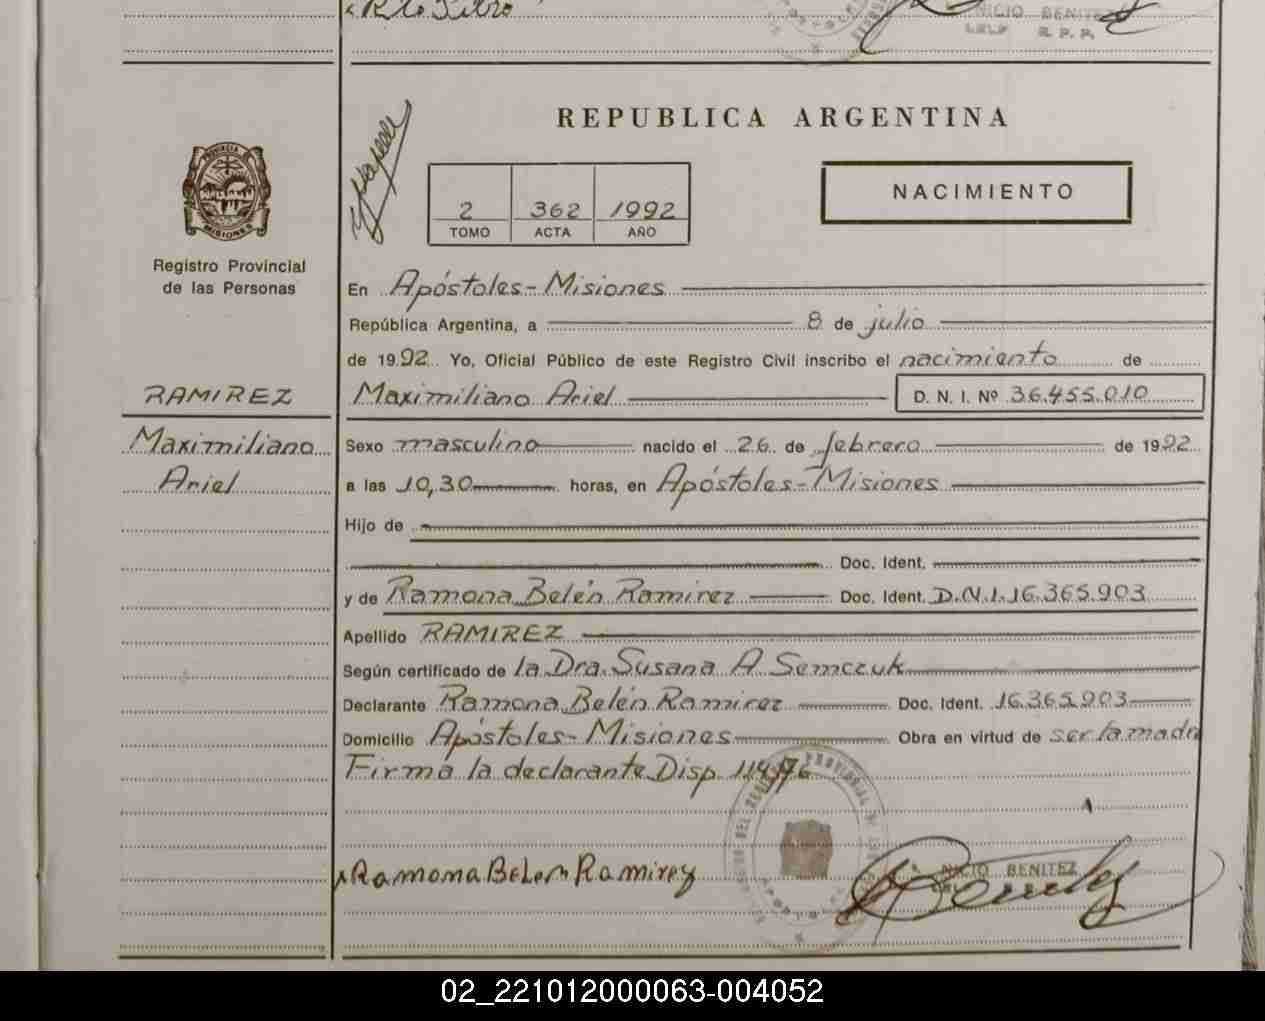 NICIO BENITEZ
REPUBLICA ARGENTINA
NACIMIENTO
2 362 1992
TOMO ACTA AÑO
PROVINCIA DE MISIONES
Registro Provincial
de las Personas
En Apóstoles-Misiones
República Argentina, a 8 de julio
de 1992 Yo, Oficial Público de este Registro Civil inscribo el nacimiento de
RAMIREZ
Maximiliano Ariel D. N. I. Nº 36.455.010
Maximiliano
Ariel
Sexo masculino nacido el 26 de febrero de 1992
a las 10,30 horas, en Apóstoles-Misiones
Hijo de
Doc. Ident.
y de Ramona Belén Ramirez Doc. Ident. D.N.I.16.365.903
Apellido RAMIREZ
Según certificado de la Dra. Susana A Semczuk
Declarante Ramona Belén Ramirez Doc. Ident. 16.365.903
Domicilio Apóstoles-Misiones Obra en virtud de ser la madre
Firma la declarante Disp. 114/76
Ramona Belen Ramirez
NICIO BENITEZ
02_221012000063-004052